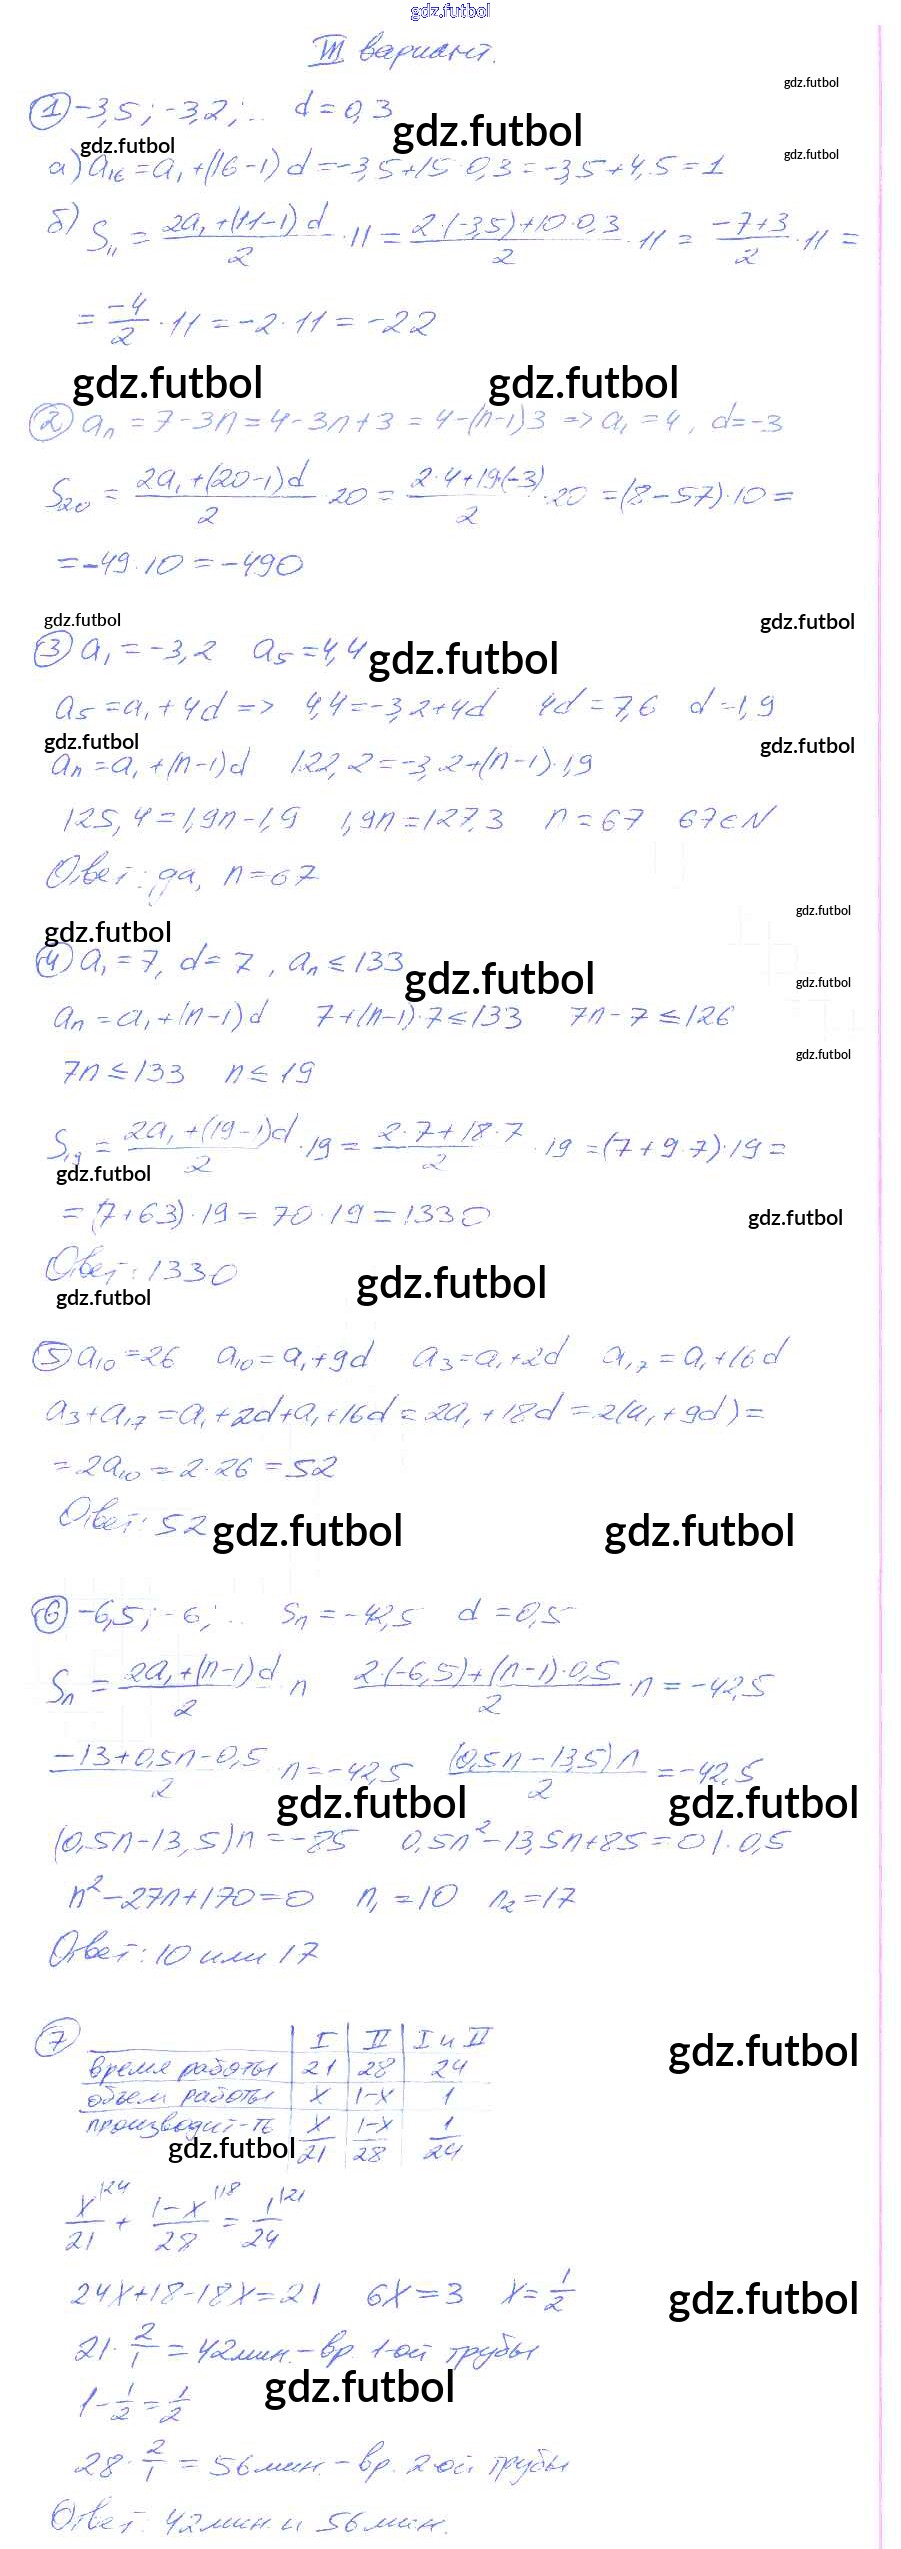 gdz.futbol
III вариант.
① -3,5; -3,2; .. d = 0,3
gdz.futbol
gdz.futbol
gdz.futbol
gdz.futbol
а) a₁₆ = a₁ + (16-1) d = -3,5 + 15·0,3 = -3,5 + 4,5 = 1
б) S₁₁ = (2a₁ + (11-1) d)/2 · 11 = (2·(-3,5) + 10·0,3)/2 · 11 = (-7+3)/2 · 11 =
= -4/2 · 11 = -2·11 = -22
gdz.futbol gdz.futbol
② aₙ = 7 - 3n = 4 - 3n + 3 = 4 - (n-1)3 => a₁ = 4, d = -3
S₂₀ = (2a₁ + (20-1)d)/2 · 20 = (2·4 + 19·(-3))/2 · 20 = (8 - 57)·10 =
= -49·10 = -490
gdz.futbol gdz.futbol
③ a₁ = -3,2 a₅ = 4,4
gdz.futbol
a₅ = a₁ + 4d => 4,4 = -3,2 + 4d 4d = 7,6 d = 1,9
gdz.futbol gdz.futbol
aₙ = a₁ + (n-1)d 122,2 = -3,2 + (n-1)·1,9
125,4 = 1,9n - 1,9 1,9n = 127,3 n = 67 67 ∈ N
Ответ: да, n = 67
gdz.futbol
gdz.futbol
④ a₁ = 7, d = 7, aₙ ≤ 133
gdz.futbol
gdz.futbol
aₙ = a₁ + (n-1) d 7 + (n-1)·7 ≤ 133 7n - 7 ≤ 126
gdz.futbol
7n ≤ 133 n ≤ 19
S₁₉ = (2a₁ + (19-1)d)/2 · 19 = (2·7 + 18·7)/2 · 19 = (7 + 9·7)·19 =
gdz.futbol
= (7 + 63)·19 = 70·19 = 1330
gdz.futbol
Ответ: 1330
gdz.futbol
gdz.futbol
⑤ a₁₀ = 26 a₁₀ = a₁ + 9d a₃ = a₁ + 2d a₁₇ = a₁ + 16d
a₃ + a₁₇ = a₁ + 2d + a₁ + 16d = 2a₁ + 18d = 2(a₁ + 9d) =
= 2a₁₀ = 2·26 = 52
Ответ: 52
gdz.futbol gdz.futbol
⑥ -6,5; -6; .. Sₙ = -42,5 d = 0,5
Sₙ = (2a₁ + (n-1)d)/2 n (2·(-6,5) + (n-1)·0,5)/2 · n = -42,5
(-13 + 0,5n - 0,5)/2 · n = -42,5 ((0,5n - 13,5) n)/2 = -42,5
gdz.futbol gdz.futbol
(0,5n - 13,5)n = -85 0,5n² - 13,5n + 85 = 0 |·0,5
n² - 27n + 170 = 0 n₁ = 10 n₂ = 17
Ответ: 10 или 17
⑦ I II I и II
gdz.futbol
время работы 21 28 24
объем работы x 1-x 1
производит-ть x/21 1-x/28 1/24
gdz.futbol
x/21 |24 + (1-x)/28 |18 = 1/24 |21
24x + 18 - 18x = 21 6x = 3 x = 1/2
gdz.futbol
21 · 2/1 = 42 мин. - вр. 1-ой трубы
gdz.futbol
1 - 1/2 = 1/2
28 · 2/1 = 56 мин. - вр. 2-ой трубы
Ответ: 42 мин. и 56 мин.